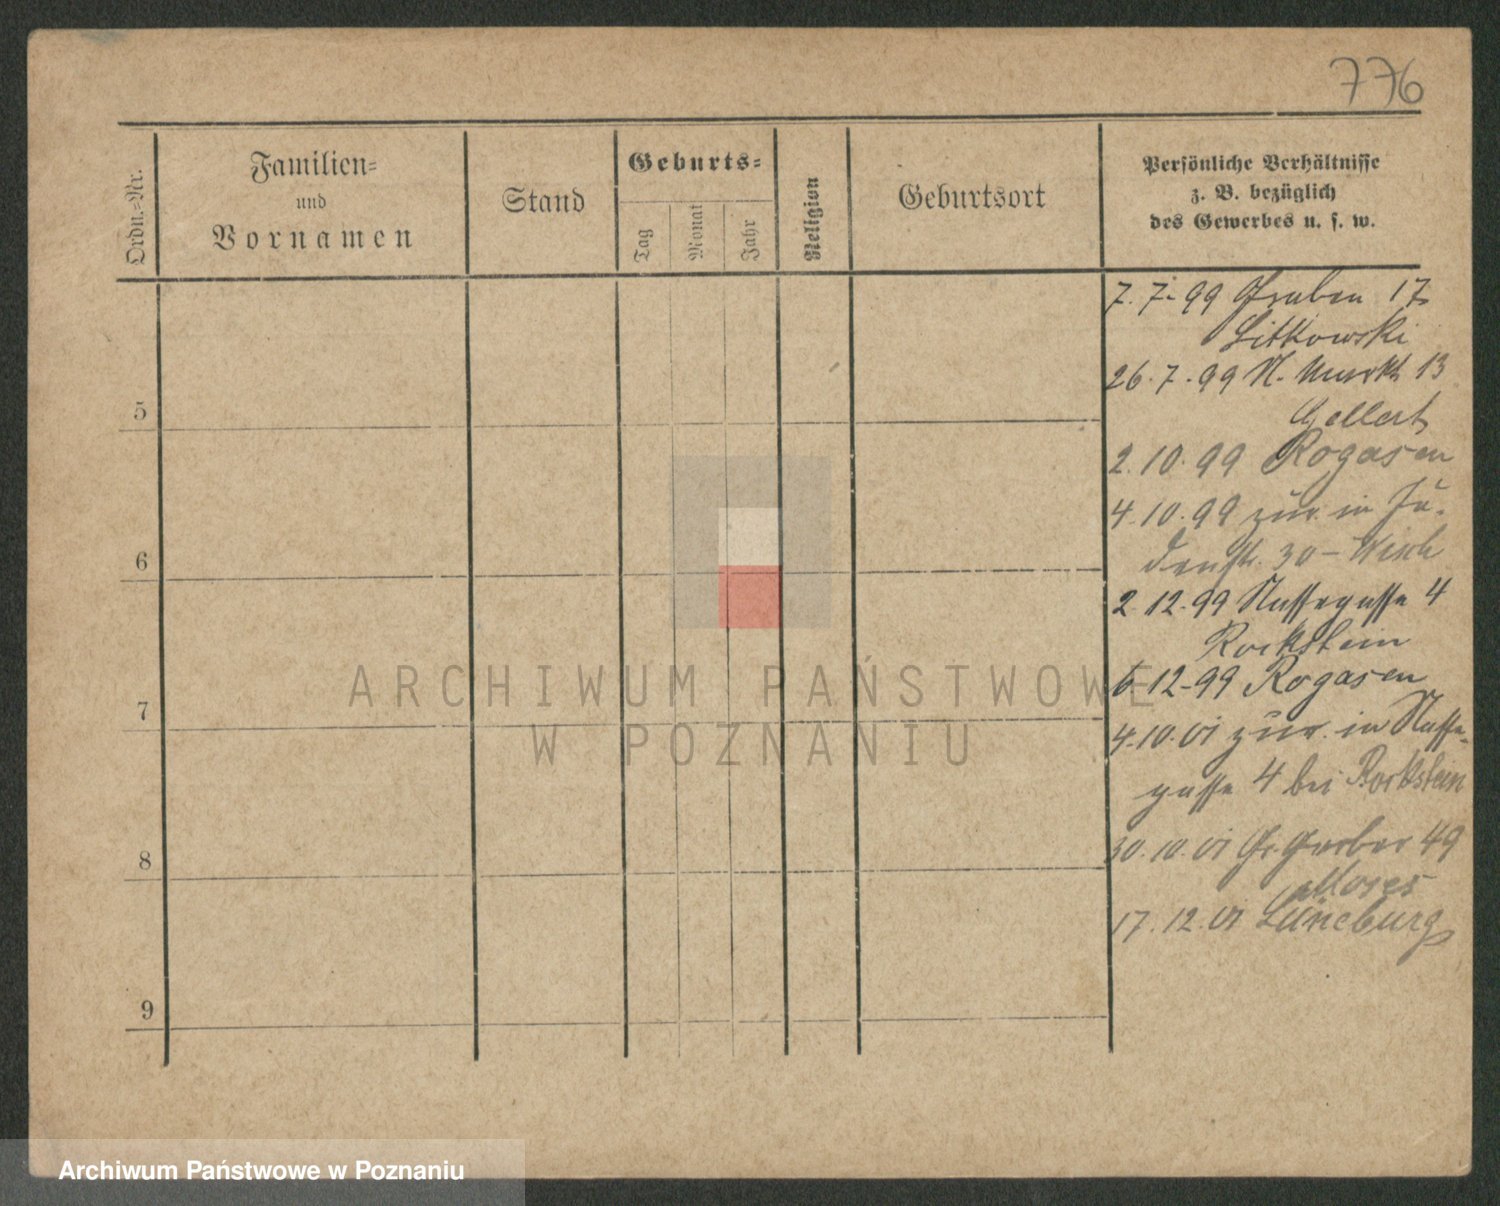 776
Ordn.-Nr.
Familien-
und
Vornamen
Stand
Geburts-
Tag
Monat
Jahr
Religion
Geburtsort
Persönliche Verhältnisse
z. B. bezüglich
des Gewerbes u. s. w.
7. 7. 99 Graben 17
Litkowski
26. 7. 99 N. Markt 13
Gellert
5
2. 10. 99 Rogasen
4. 10. 99 zur. in Jü-
denstr. 30 - Wisch
6
2. 12. 99 Nassegasse 4
Rockstein
6. 12. 99 Rogasen
7
4. 10. 01 zur. in Nasse-
gasse 4 bei Rockstein
8
30. 10. 01 Gr. Gerber 49
Moses
17. 12. 01 Lüneburg
9
ARCHIWUM PAŃSTWOWE
W POZNANIU
Archiwum Państwowe w Poznaniu